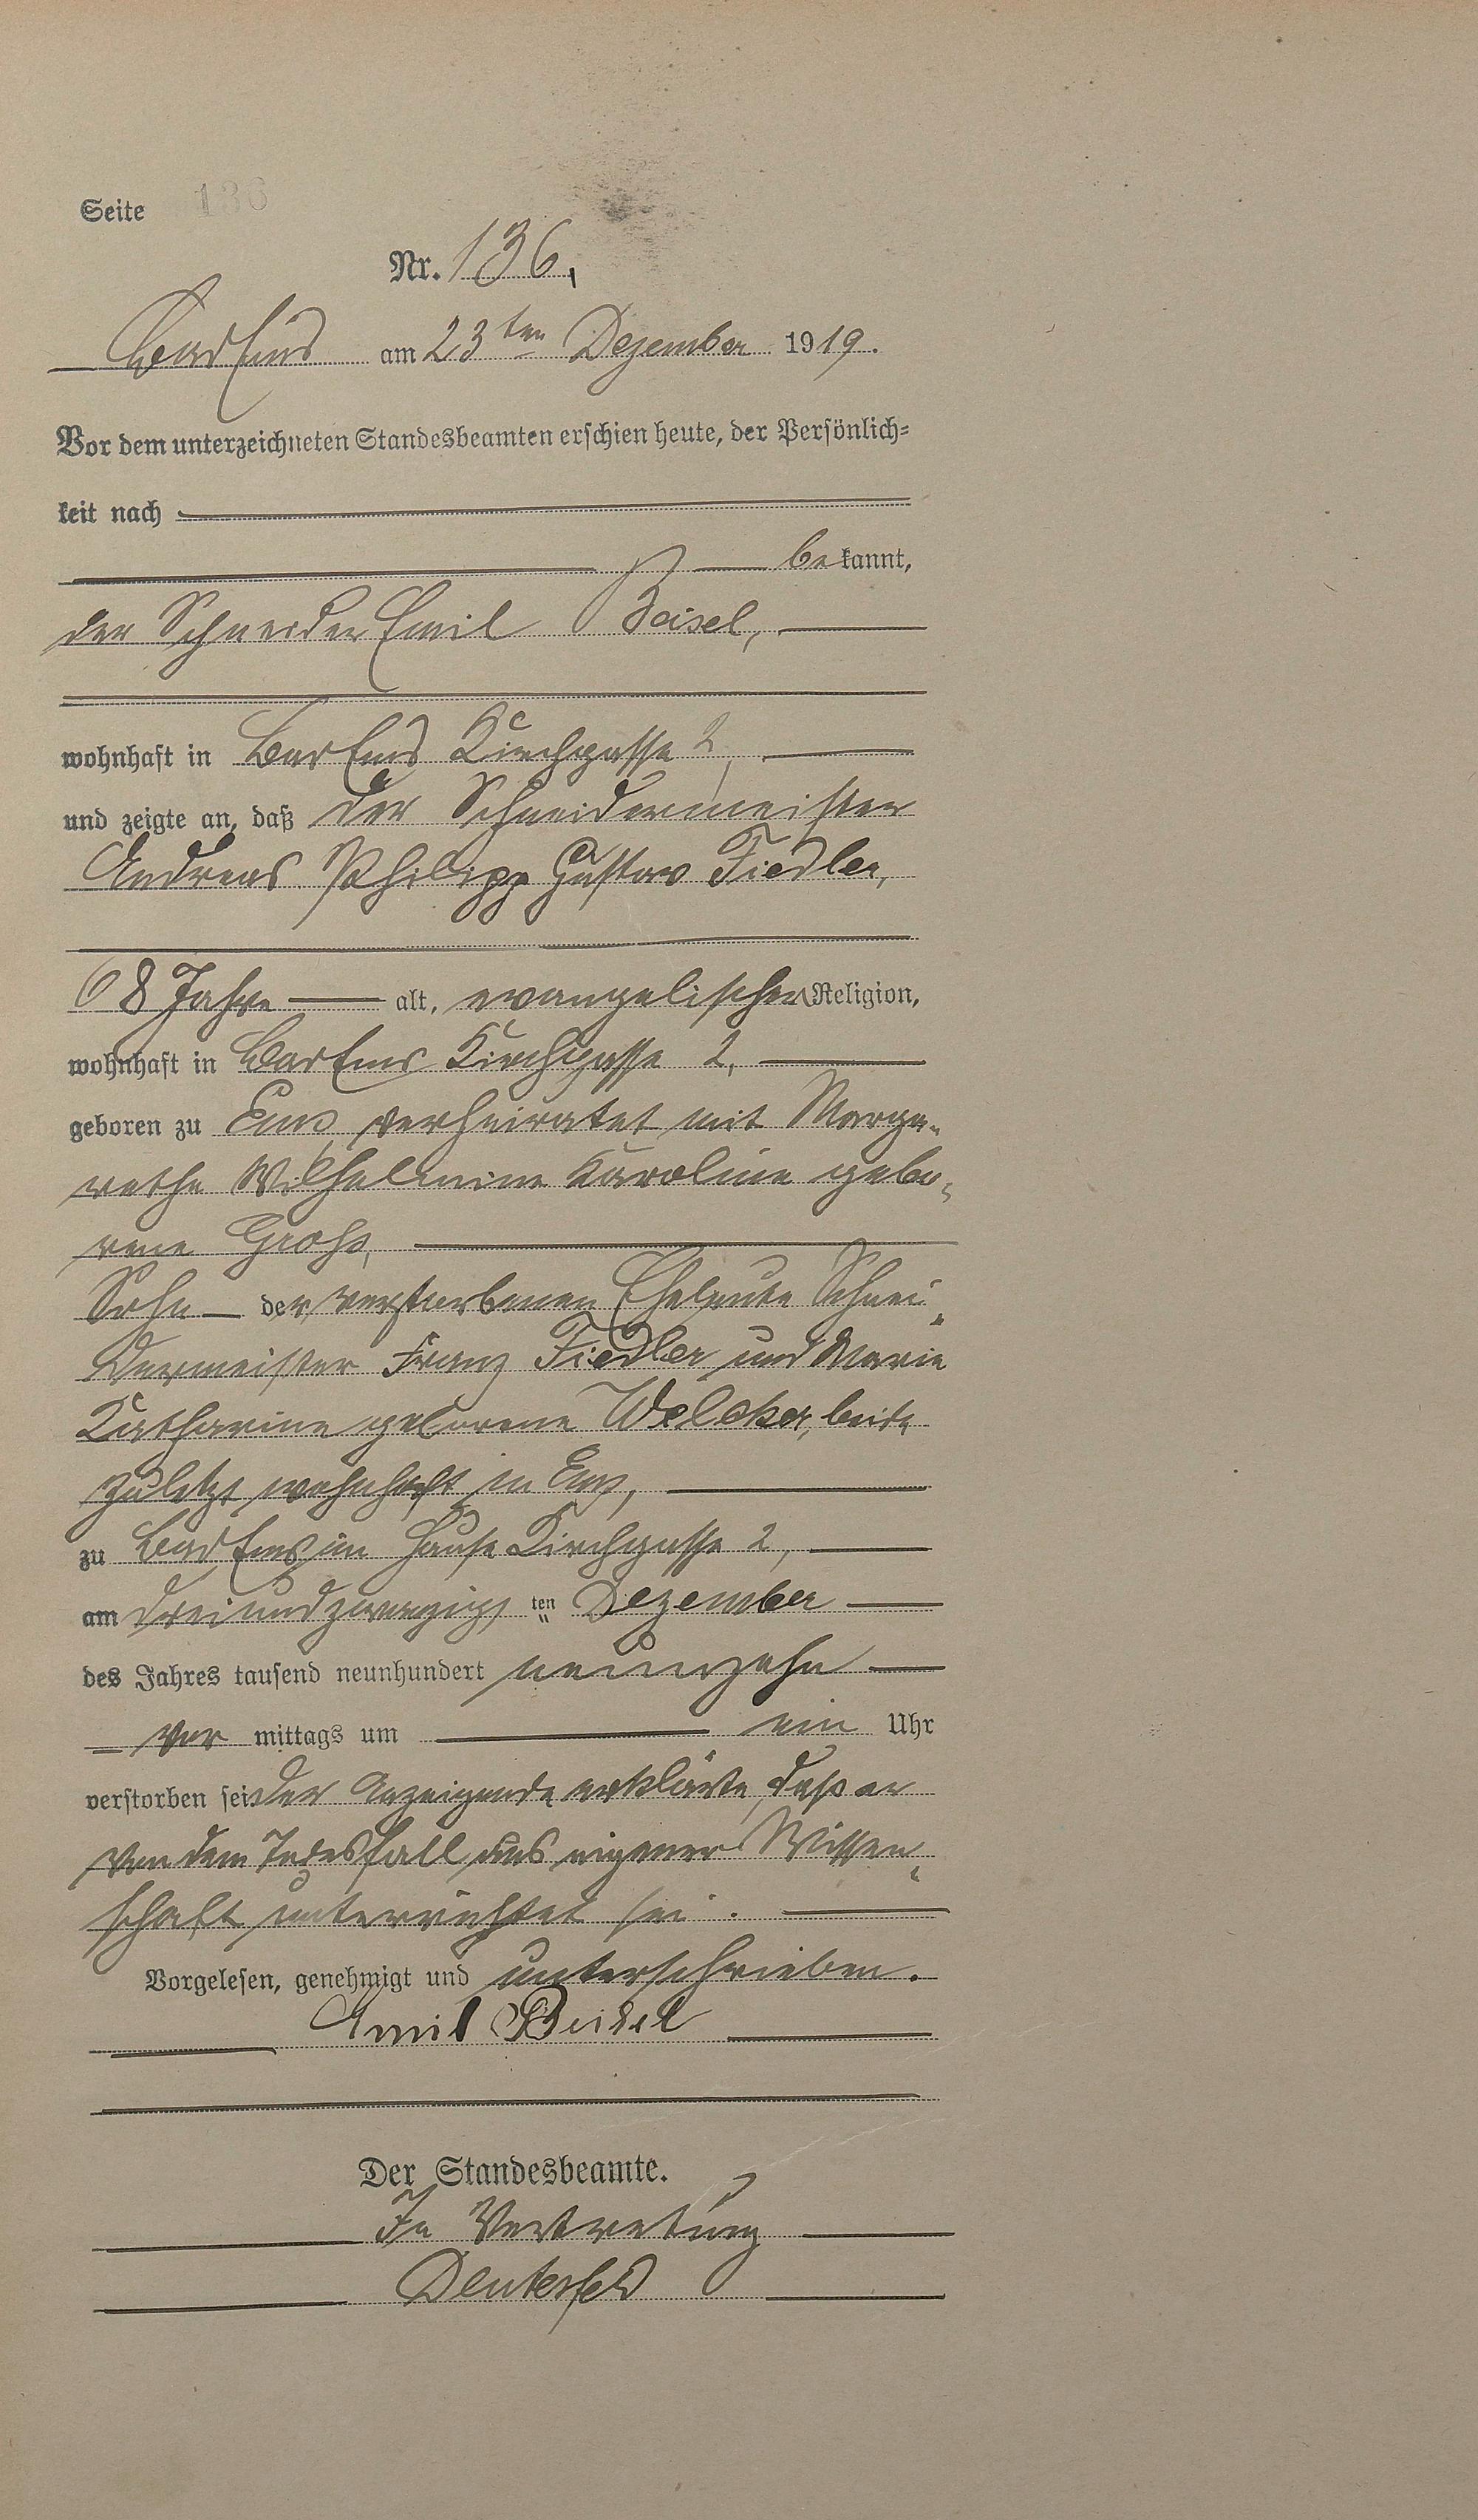 Seite 136
Nr. 136.
Bad Ems am 23ten Dezember 1919.
Vor dem unterzeichneten Standesbeamten erschien heute, der Persönlich=
keit nach
bekannt,
der Schneider Emil Beisel,
wohnhaft in Bad Ems Kirchgasse 2,
und zeigte an, daß der Schneidermeister
Andreas Philipp Gustav Fiedler,
68 Jahre alt, evangelischer Religion,
wohnhaft in Bad Ems Kirchgasse 2,
geboren zu Ems, verheiratet mit Marga-
rethe Wilhelmine Karoline gebo-
rene Groß,
Sohn der verstorbenen Eheleute Schnei-
dermeister Franz Fiedler und Marie
Katharine geborene Welcker, beide
zuletzt wohnhaft in Ems,
zu Bad Ems im Hause Kirchgasse 2,
am dreiundzwanzigsten Dezember
des Jahres tausend neunhundert neunzehn
vor mittags um ein Uhr
verstorben sei. Der Anzeigende erklärte, daß er
von dem Todesfall aus eigener Wissen-
schaft unterrichtet sei.
Vorgelesen, genehmigt und unterschrieben.
Emil Beisel
Der Standesbeamte.
In Vertretung
Deutesfeld